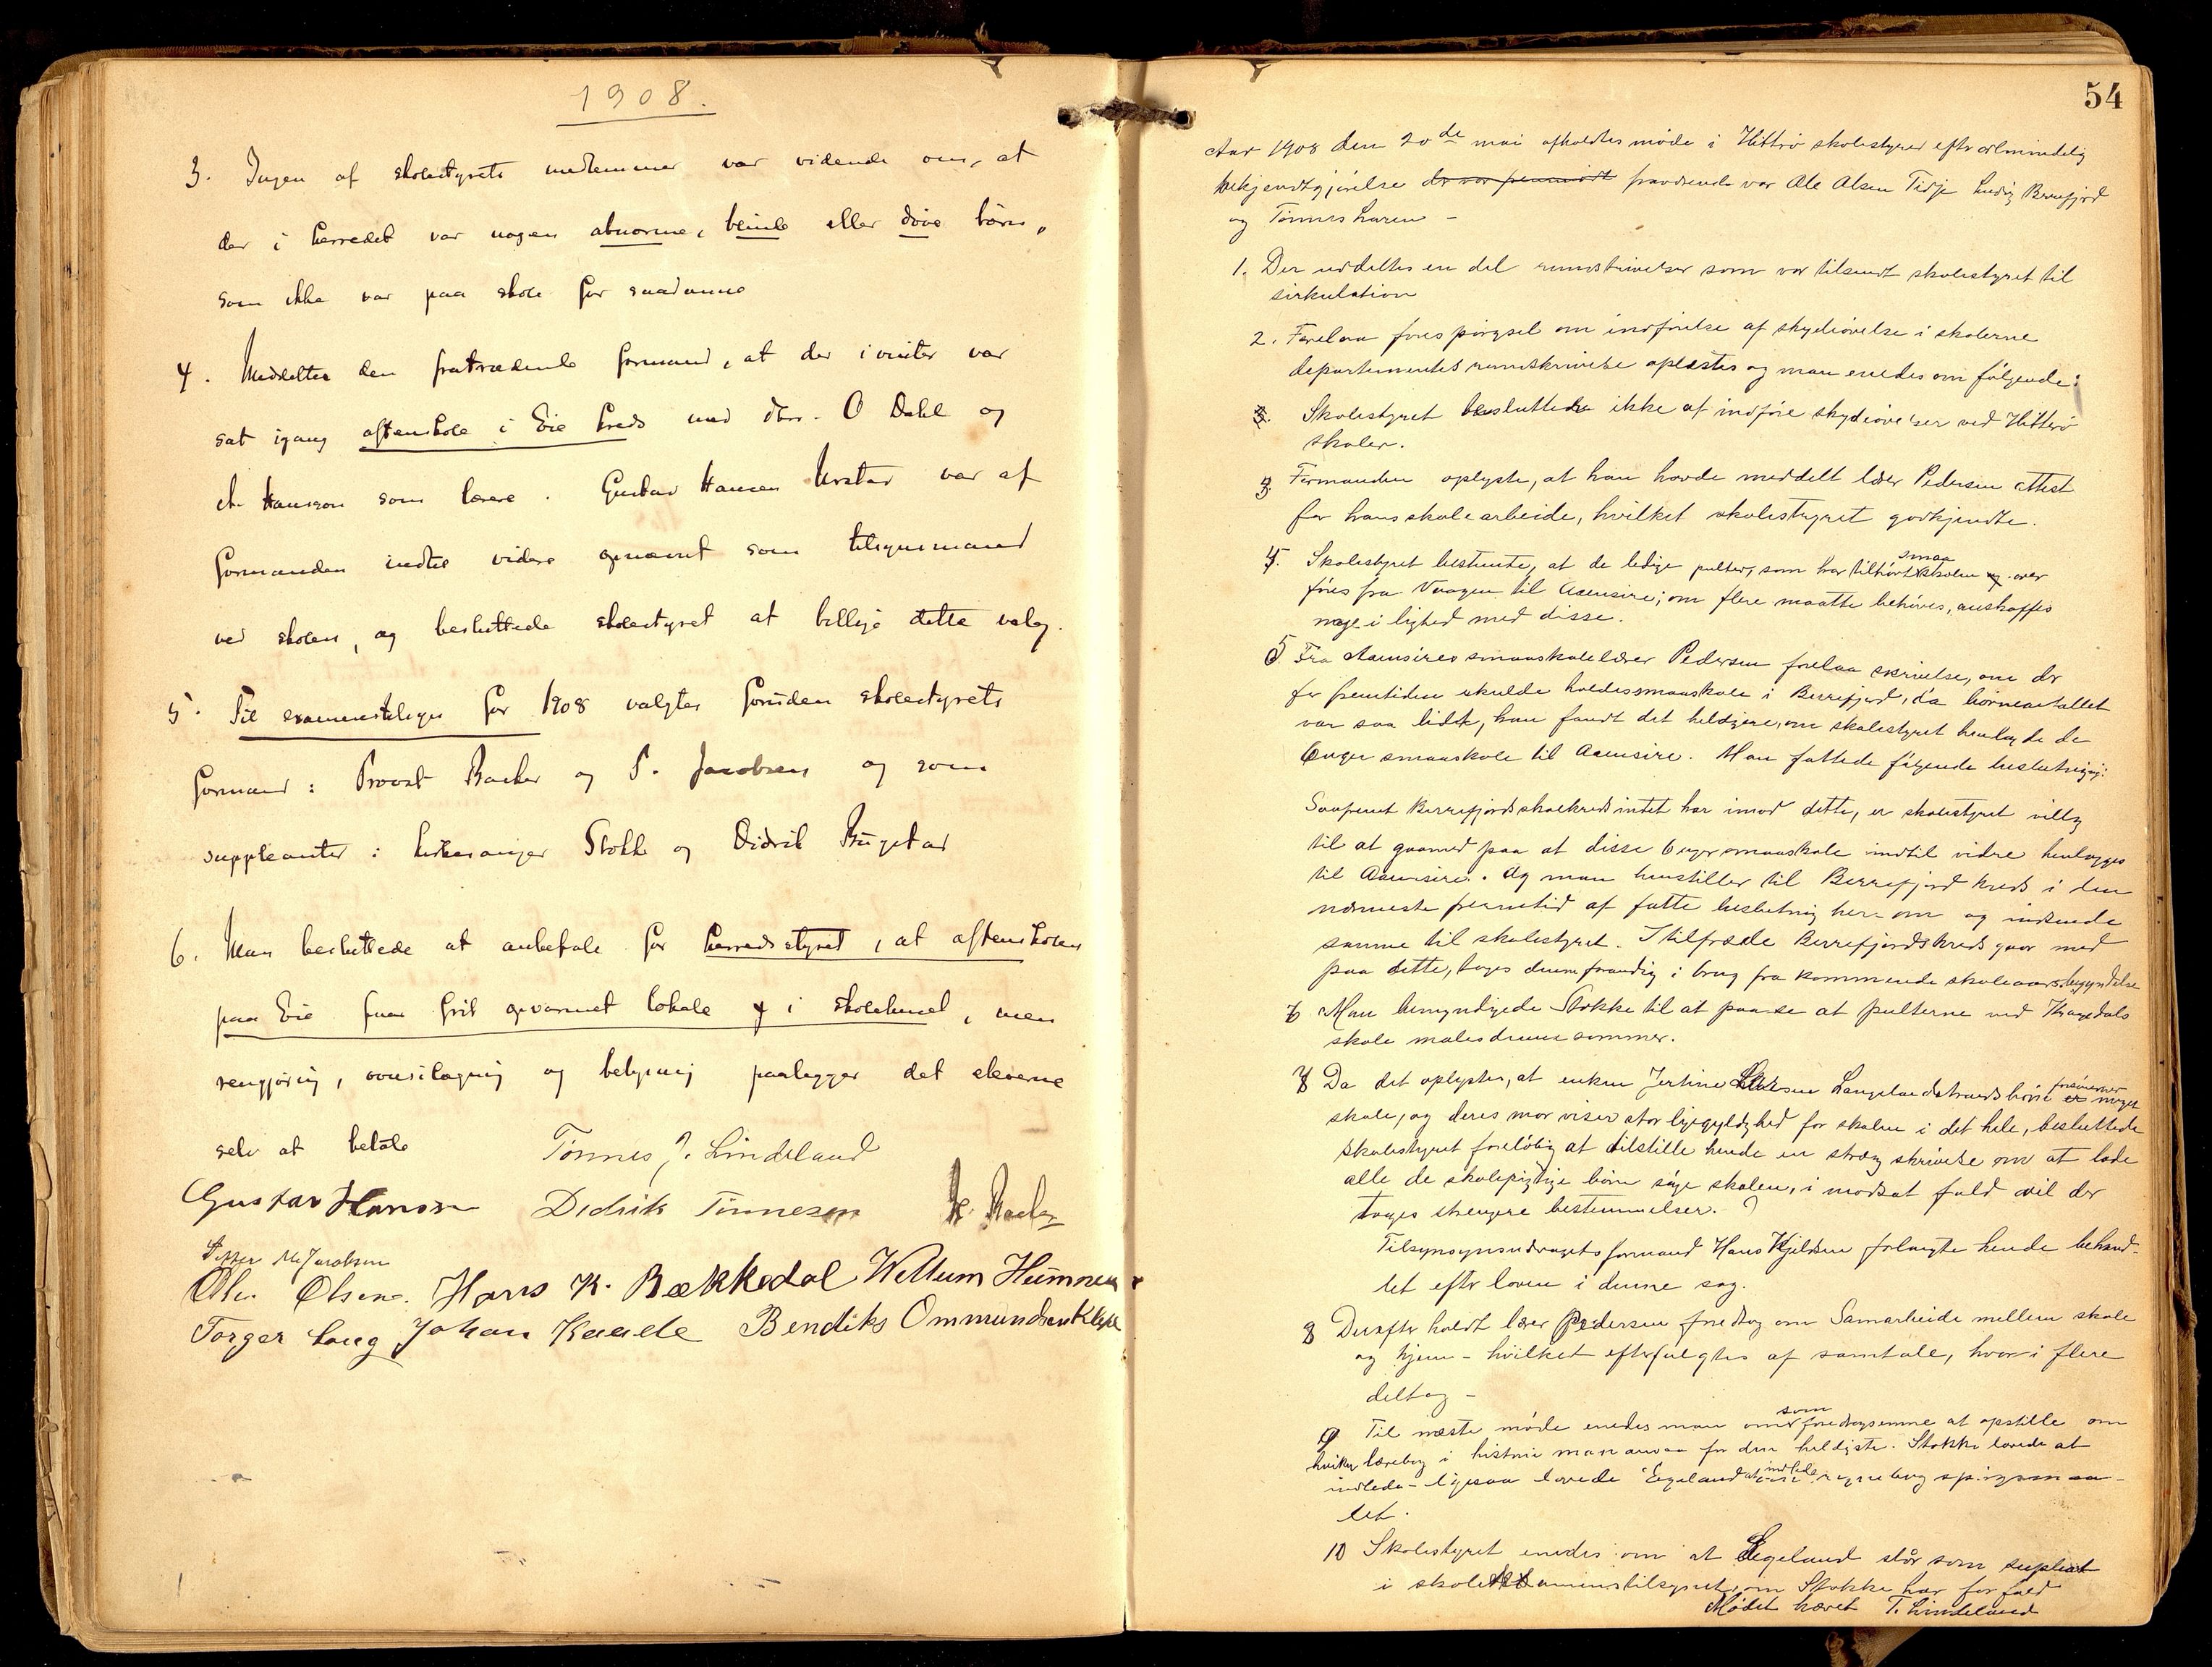 1908.
3. Ingen af skolestyrets medlemmer var vidende om, at
der i herredet var nogen abnorme, blinde eller døve børn,
som ikke var paa skole for saadanne
4. Meddeltes den fratrædende formand, at der i vinter var
sat igang aftenskole i Eie kreds med O Dahl og
Hanson som lærere. Gustav Hansen Urstad var af
formanden indtil videre opnævnt som tilsynsmand
ved skolen, og besluttede skolestyret at billige dette valg.
5. Til examenstilsyn for 1908 valgtes foruden skolestyrets
formand: Provst Barker og P. Jacobsen og som
suppleanter: kirkesanger Stokke og Didrik Bugstad
6. Man besluttede at anbefale for herredsstyret, at aftenskolen
paa Eie faar frit opvarmet lokale i skolehuset, men
rengjøring, ovnsilægning og belysning paalegger det eleverne
selv at betale Tønnes J. Lindeland
Gustav Hanson Didrik Tønnesen
Jacobsen
Ole Olsen. Hans K. Bækkedal Wellum
Torger Laug Johan Kaade Bendiks Ommundsen
54
Aar 1908 den 20de mai afholdtes møde i Hittrø skolestyre efter almindelig
bekjendtgjørelse fraværende var Ole Olsen Tidje Ludvig Berrefjord
og Tønnes Laven –
1. Der uddeltes en del rundskrivelser som var tilsendt skolestyret til
sirkulation
2. Forelaa forespørgsel om indførelse af skydeøvelse i skolerne
departementets rundskrivelse oplæstes og man enedes om følgende:
Skolestyret besluttede ikke at indføre skydeøvelser ved Hitterø
skoler.
3 Formanden oplyste, at han havde meddelt lærer Pedersen attest
for hans skolearbeide, hvilket skolestyret godkjendte.
4. Skolestyret bestemte, at de ledige pulter, som har tilhørt smaa skolen over
føres fra Vaagen til Aaensire; om flere maatte behøves, anskaffes
noge i lighed med disse.
5 Fra Aaensires smaaskolelærer Pedersen forelaa skrivelse, om der
for fremtiden skulde holdes smaaskole i Berrefjord, da børneantallet
var saa lidet, han fandt det heldigere, om skolestyret henlagde de
6 uger smaaskole til Aaensire. Man fattede følgende beslutning:
Saafremt Berrefjords skolekreds intet har imod dette, er skolestyret villig
til at gaa med paa at disse 6 uger smaaskole indtil vidre henlægges
til Aaensire. Og man henstiller til Berrefjord kreds i den
nærmeste fremtid at fatte beslutning her-om og indsende
samme til skolestyret. I tilfælde Berrefjords kreds gaar med
paa dette, tages denne framdrig i brug fra kommende skoleaars begyndelse
6 Man bemyndigede Stokke til at paase at pulterne ved Kragedals
skole males denne sommer.
7 Da det oplystes, at enken Jertine Langelandstrands børn forsømmer meget
skole, og deres mor viser stor ligegyldighed for skolen i det hele, besluttede
skolestyret foreløbig at tilstille hende en streng skrivelse om at lade
alle de skolepligtige børn søge skolen, i modsat fald vil der
tages strengere bestemmelser.
Tilsynsudvalgets formand Hans Kjeldsen forlangte hende behand-
let efter loven i denne sag.
8 Derefter holdt lærer Pedersen foredrag om Samarbeide mellem skole
og hjem – hvilket efterfulgtes af samtale, hvor-i flere
deltog –
9 Til næste møde enedes man om som foredragsemne at opstille om
hvilken lærebog i historie man ansaa for den heldigste. Stokke lovede at
indlede – ligesaa lovede Egeland at indlede regnebog spørgsmaa-
let.
10 Skolestyret enedes om at Egeland står som supleat
i skoleexamenstilsynet, om Stokke har forfald
Mødet hævet T. Lindeland